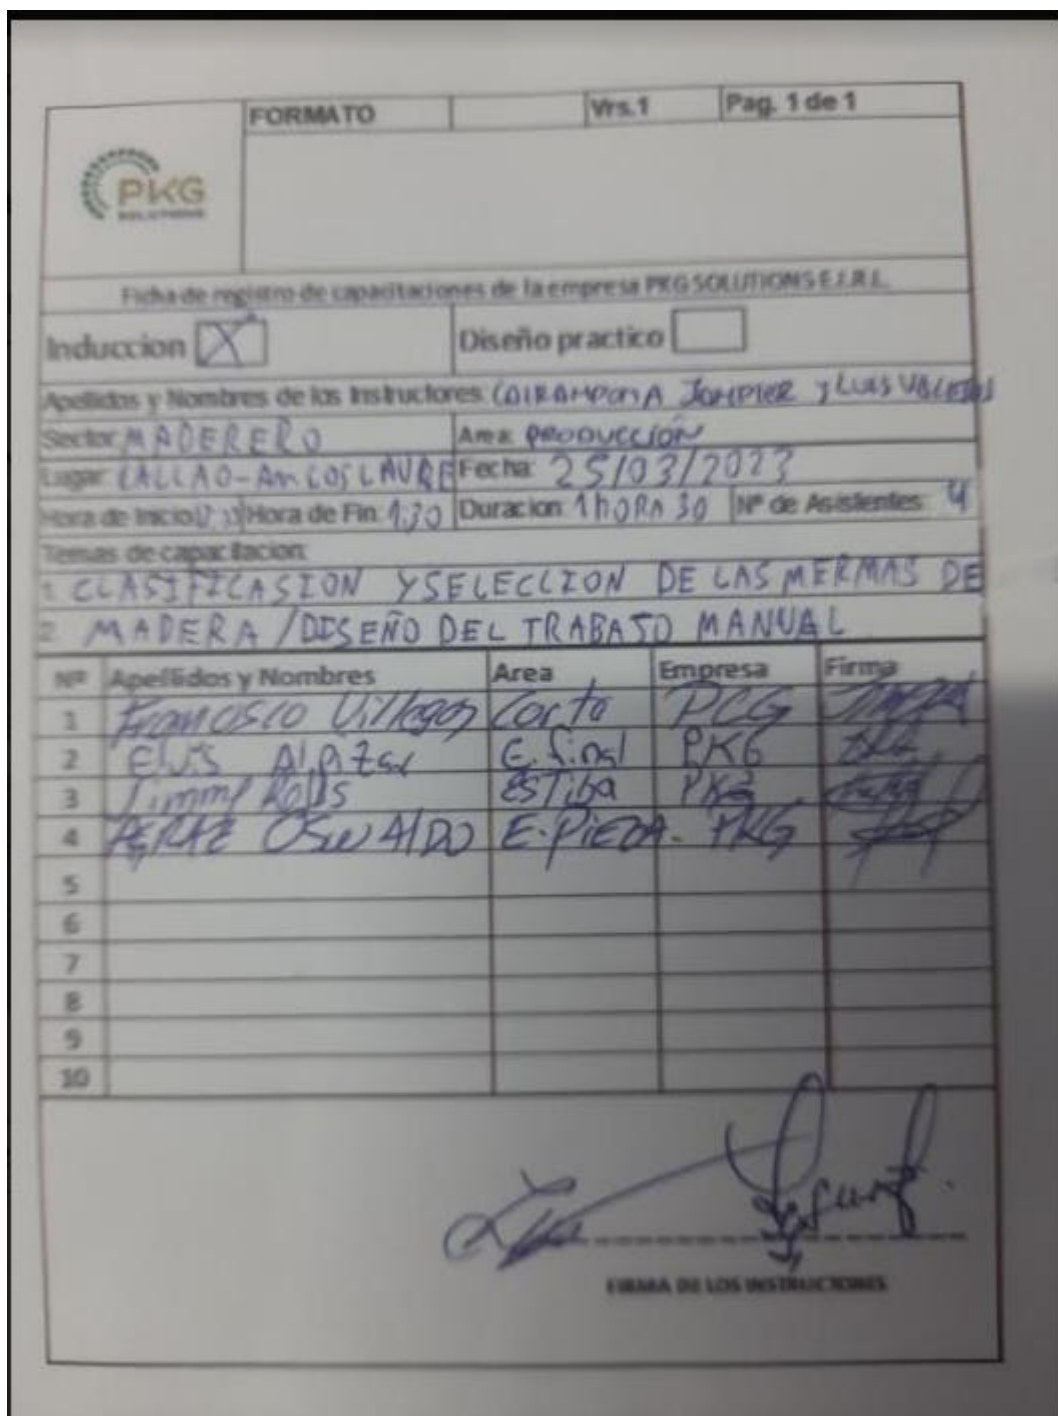 FORMATO Vrs.1 Pag. 1 de 1
PKG
SOLUTIONS
Ficha de registro de capacitaciones de la empresa PKG SOLUTIONS E.I.R.L.
Induccion X Diseño practico
Apellidos y Nombres de los Instructores: JOMPIER y LUIS
Sector: MADERERO Area: PRODUCCIÓN
Lugar: CALLAO- Fecha: 25/03/2023
Hora de Inicio Hora de Fin: 1:30 Duracion: 1 hORA 30 Nº de Asistentes: 4
Temas de capacitacion:
1. CLASIFICASION Y SELECCION DE LAS MERMAS DE
2. MADERA / DISEÑO DEL TRABAJO MANUAL
Nº Apellidos y Nombres Area Empresa Firma
1 Francisco Villegas Corte PCG
2 ELVIS E. final PKG
3 Estiba PKG
4 OSWALDO E. PIEZA. PKG
5
6
7
8
9
10
FIRMA DE LOS INSTRUCTORES